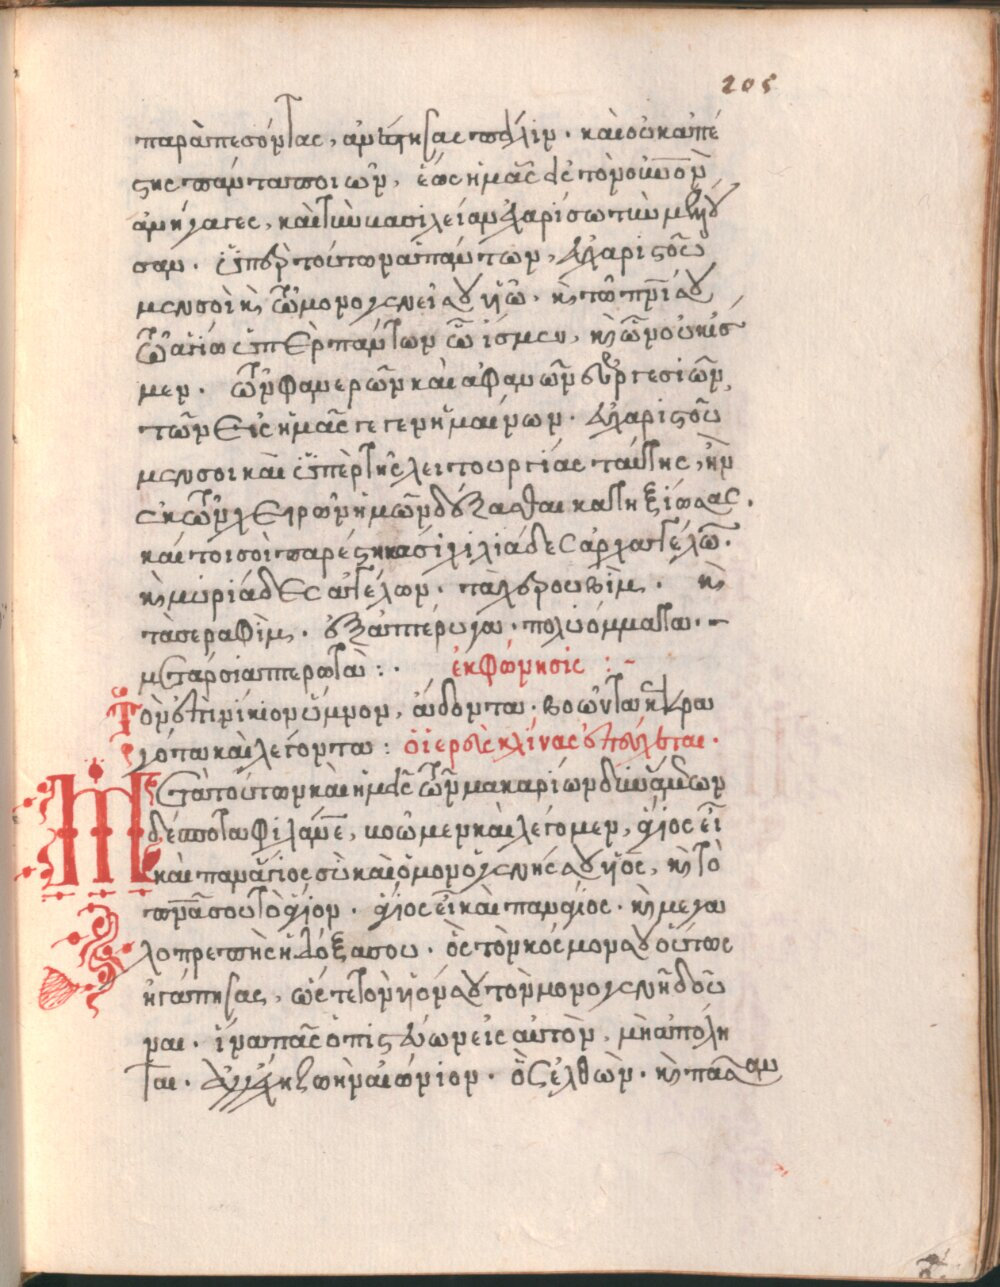 205
παραπεσόντας, ἀνέστησας πάλιν · καὶ οὐκ ἀπέ
στης πάντα ποιῶν, ἕως ἡμᾶς εἰς τὸν οὐνὸν
ἀνήγαγες, καὶ τὴν βασιλείαν ἐχαρίσω τὴν μέλλου
σαν · ὑπὲρ τούτων ἁπάντων, εὐχαριστοῦ
μεν σοὶ κ τῶ μονογενεῖ σου υἱῶ · κ τῶ πνι σου
τῶ ἁγίω ὑπὲρ πάντων ὧν ἴσμεν, κ ὧν οὐκ ἴσ
μεν · τῶν φανερῶν καὶ ἀφανῶν εὐεργεσιῶν,
τῶν εἰς ἡμᾶς γεγενημαίνων · εὐχαριστοῦ
μεν σοι καὶ ὑπὲρ τῆς λειτουργίας ταύτης, ἣν
ἐκ τῶν χειρῶν ἡμῶν δέξασθαι κατηξίωσας ·
καί τοι σοὶ παρεστήκασι χιλιάδες ἀρχαγγέλων ·
κ μυριάδες ἀγγέλων · τὰ χερουβὶμ · κ
τὰ σεραφὶμ · ἑξαπτέρυγα · πολυόμματα ·
μετάρσια πτερωτὰ : · ἐκφώνησις : ~
Τὸν ἐπινίκιον ὕμνον, ἄδοντα · βοῶντα κ κεκρα
γότα καὶ λέγοντα : ὁ ἱερεὺς κλίνας ἐπεύχεται ·
Μετὰ τούτων καὶ ἡμεῖς τῶν μακαρίων δυνάμεων
δέσποτα φιλάνε, βοῶμεν καὶ λέγομεν, ἅγιος εἶ
καὶ πανάγιος σὺ καὶ ὁ μονογενής σου υἱὸς, κ τὸ
πνᾶ σου τὸ ἅγιον · ἅγιος εἶ καὶ πανάγιος · κ μεγα
λοπρεπὴς ἡ δόξα σου · ὃς τὸν κόσμον σου οὕτως
ἠγάπησας, ὥστε τὸν υἱόν σου τὸν μονογενῆ δοῦ
ναι · ἵνα πᾶς ὁ πιστεύων εἰς αὐτὸν, μὴ ἀπόλη
ται · ἀλλ' ἔχη ζωὴν αἰώνιον · ὃς ἐλθὼν · κ πᾶσαν